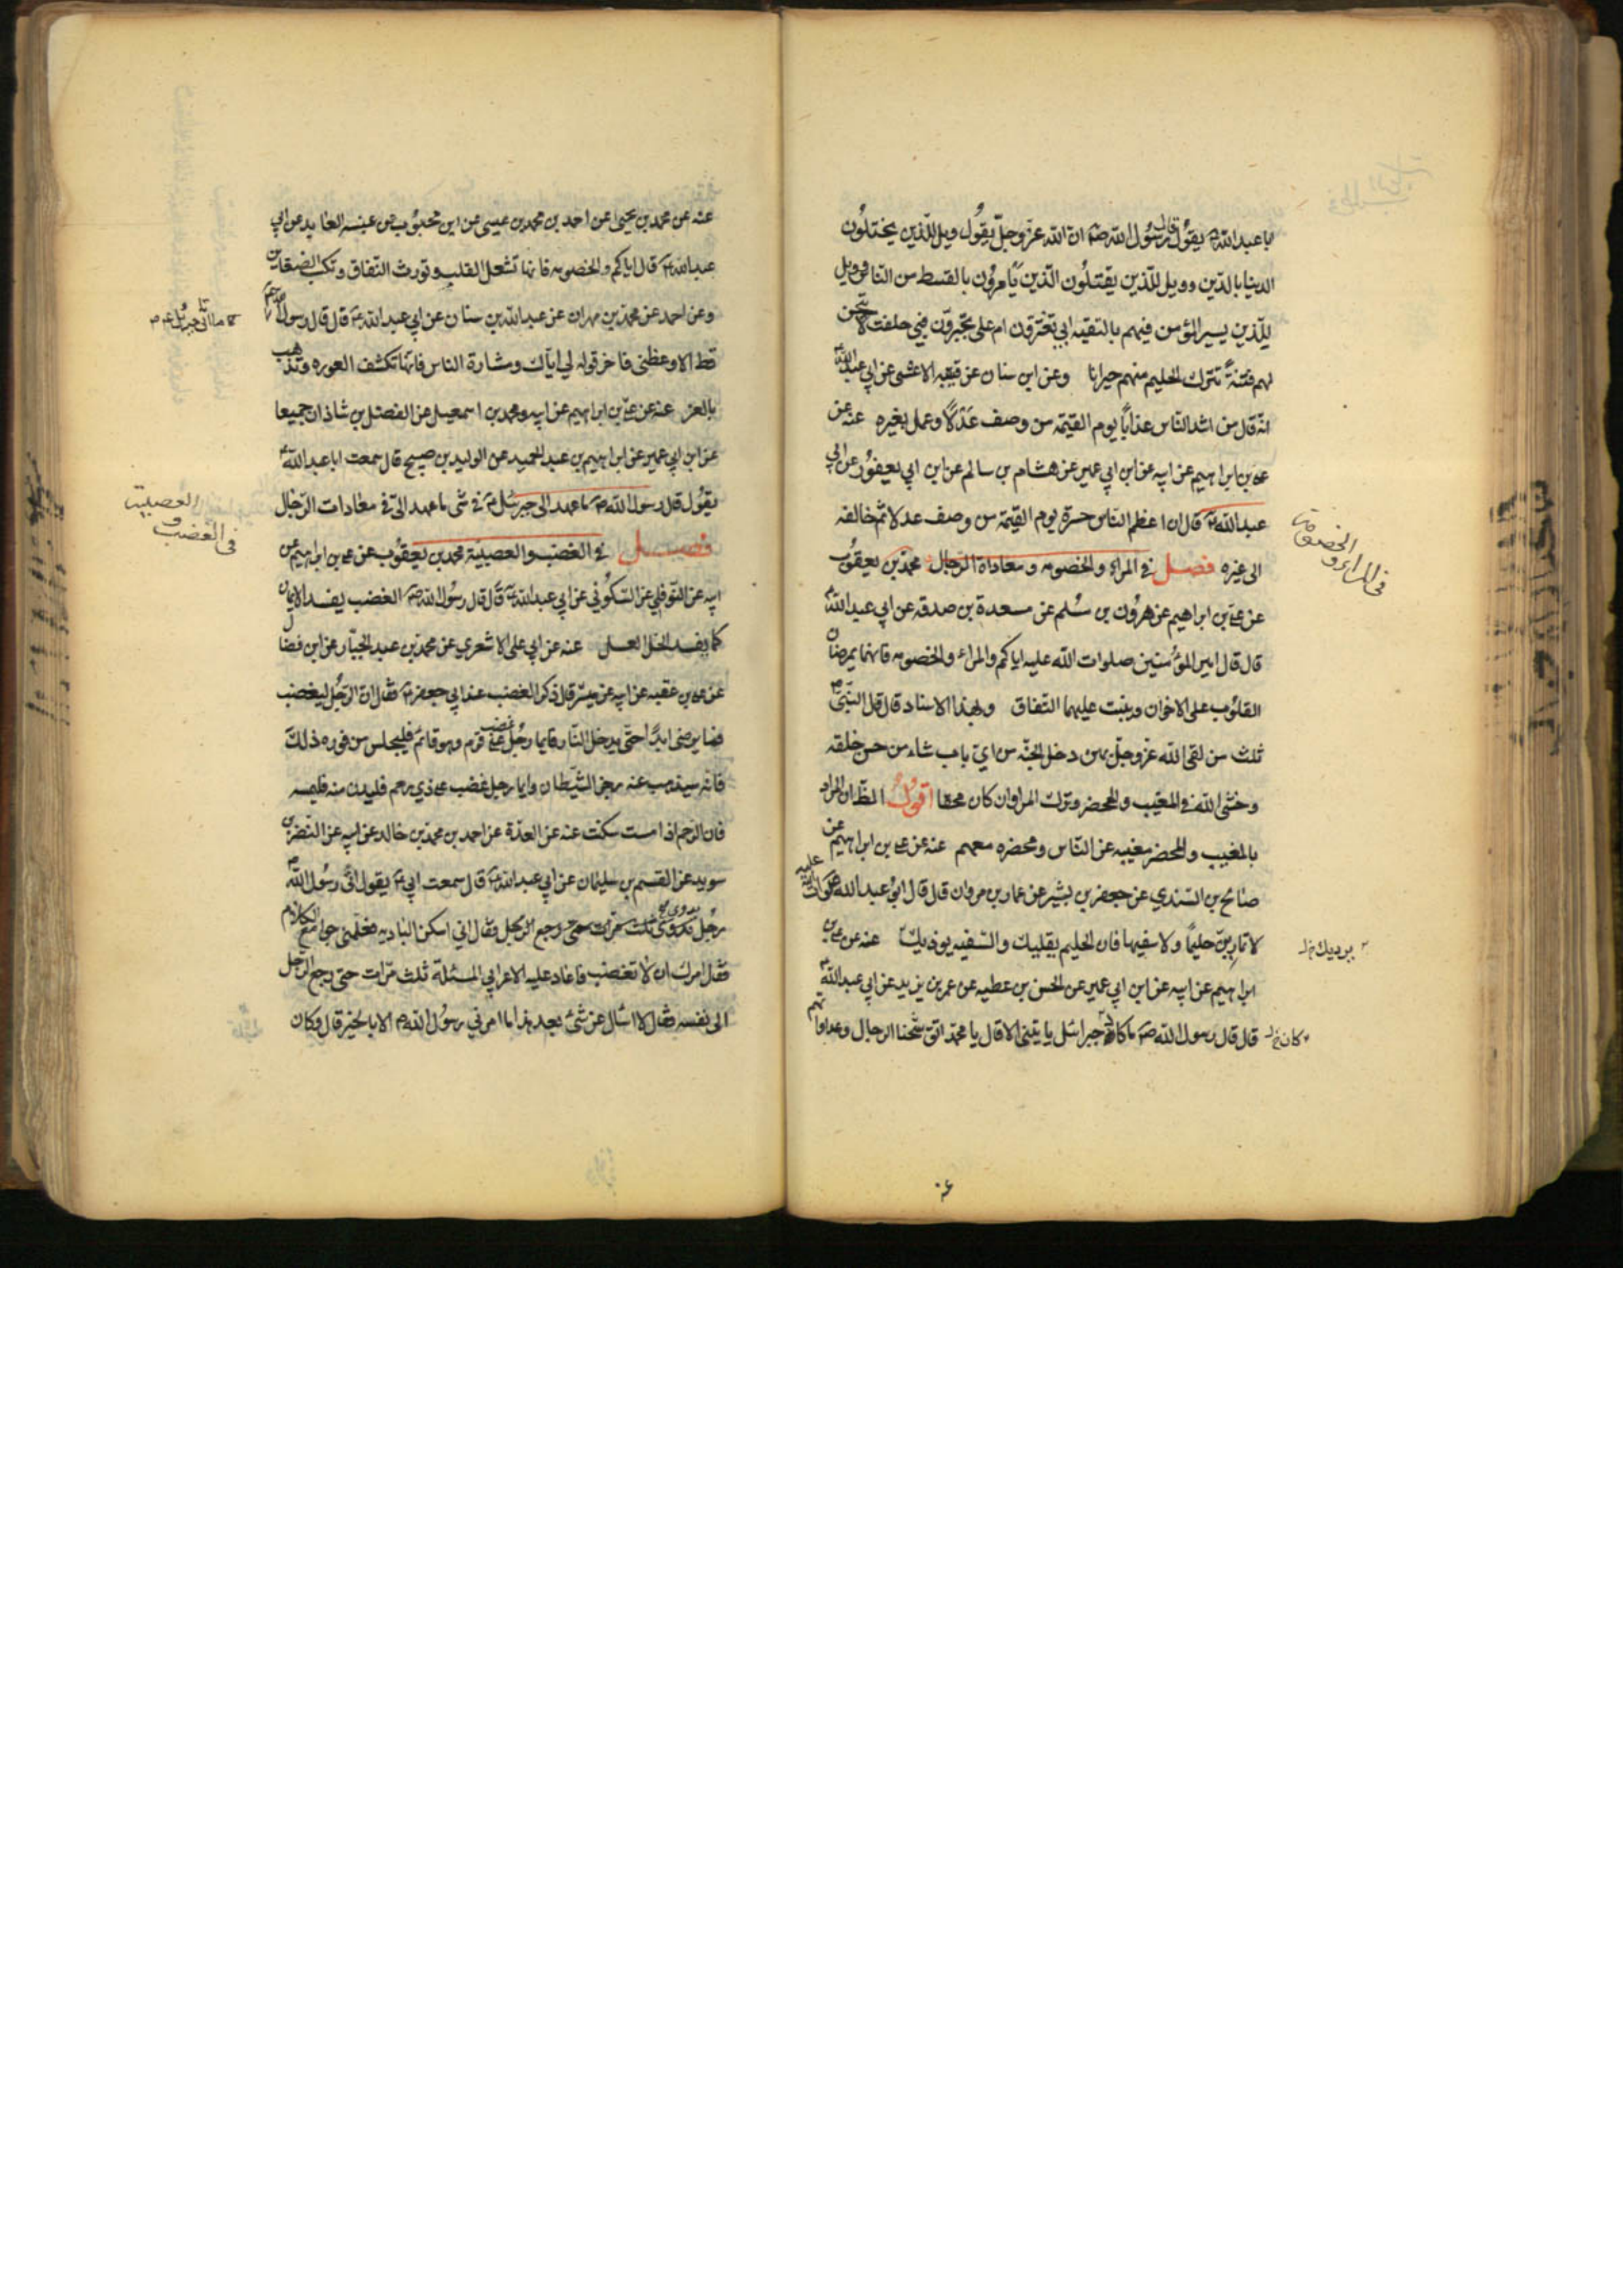 ابا عبدالله ع يقول قال رسول الله ص ان الله عز وجل يقول ويل للذين يختلون
الدنيا بالدين وويل للذين يقتلون الذين يأمرون بالقسط من الناس وويل
للذين يسير المؤمن فيهم بالتقيه ابي يغترون ام على يجترون فبي حلفت لاتيحن
لهم فتنة تترك الحليم منهم حيرانا وعن ابن سنان عن قتيبه الاعشى عن ابي عبدالله ع
انه قال من اشد الناس عذابا يوم القيمة من وصف عدلا وعمل بغيره عنه عن
علي بن ابراهيم عن ابيه عن ابن ابي عمير عن هشام بن سالم عن ابن ابي يعفور عن ابي
عبدالله ع قال ان اعظم الناس حسرة يوم القيمة من وصف عدلا ثم خالفه
الى غيره فصل في المراء والخصومه ومعاداة الرجال محمد بن يعقوب
في المراء والخصومات
عن علي بن ابراهيم عن هرون بن مسلم عن مسعدة بن صدقه عن ابي عبدالله ع
قال قال امير المؤمنين صلوات الله عليه اياكم والمراء والخصومه فانهما يمرضان
القلوب على الاخوان وينبت عليهما النفاق وبهذا الاسناد قال قال النبي ص
ثلث من لقى الله عز وجل بهن دخل الجنه من اي باب شاء من حسن خلقه
وخشى الله في المغيب والمحضر وترك المرا وان كان محقا اقول الظ ان المراد
بالمغيب والمحضر مغيبه عن الناس ومحضره معهم عنه عن علي بن ابراهيم عن
صالح بن السندي عن جعفر بن بشير عن عمار بن مروان قال قال ابو عبدالله صلوات الله عليه
لا تمارين حليما ولا سفيها فان الحليم يقليك والسفيه يوذيك عنه عن علي بن
يرديك خ ل
ابراهيم عن ابيه عن ابن ابي عمير عن الحسن بن عطيه عن عمر بن يزيد عن ابي عبدالله ع
قال قال رسول الله ص ما كاد جبرائيل ياتيني الا قال يا محمد اتق شحنا الرجال وعداوتهم
كان خ ل
عنه
عنه عن محمد بن يحيى عن احمد بن محمد بن عيسى عن ابن محبوب عن عنبسه العابد عن ابي
عبدالله ع قال اياكم والخصومه فانها تشغل القلب وتورث النفاق وتكسب الضغاين
وعن احمد عن محمد بن مهران عن عبدالله بن سنان عن ابي عبدالله ع قال قال رسول الله ص
ما اتاني جبرئيل ع
قط الا وعظني فاخر قوله لي اياك ومشارة الناس فانها تكشف العوره وتذهب
بالعز عنه عن علي بن ابراهيم عن ابيه ومحمد بن اسمعيل عن الفضل بن شاذان جميعا
عن ابن ابي عمير عن ابراهيم بن عبدالحميد عن الوليد بن صبيح قال سمعت ابا عبدالله ع
يقول قال رسول الله ص ما عهد الى جبرئيل ع في شى ما عهد الى في معادات الرجال
فصل في الغضب والعصبية محمد بن يعقوب عن علي بن ابراهيم عن
في الغضب و العصبية
ابيه عن النوفلي عن السكوني عن ابي عبدالله ع قال قال رسول الله ص الغضب يفسد الايمان
كما يفسد الخل العسل عنه عن ابي على الاشعري عن محمد بن عبد الجبار عن ابن فضال
عن علي بن عقبه عن ابيه عن ميسر قال ذكر الغضب عند ابي جعفر ع فقال ان الرجل ليغضب
فما يرضى ابدا حتى يدخل النار فايما رجل غضب على قوم وهو قائم فليجلس من فوره ذلك
فانه سيذهب عنه رجز الشيطان وايما رجل غضب على ذي رحم فليدن منه فليمسه
فان الرحم اذا مست سكنت عنه عن العدة عن احمد بن محمد بن خالد عن ابيه عن النضر بن
سويد عن القسم بن سليمان عن ابي عبدالله ع قال سمعت ابي ع يقول اتى رسول الله ص
رجل بدوي فقال اني اسكن الباديه فعلمني جوامع الكلام
فقال امرك ان لا تغضب فاعاد عليه الاعرابي المسئلة ثلث مرات حتى رجع الرجل
الى نفسه فقال لا اسال عن شئ بعد هذا ما امرني رسول الله ص الا بالخير قال وكان